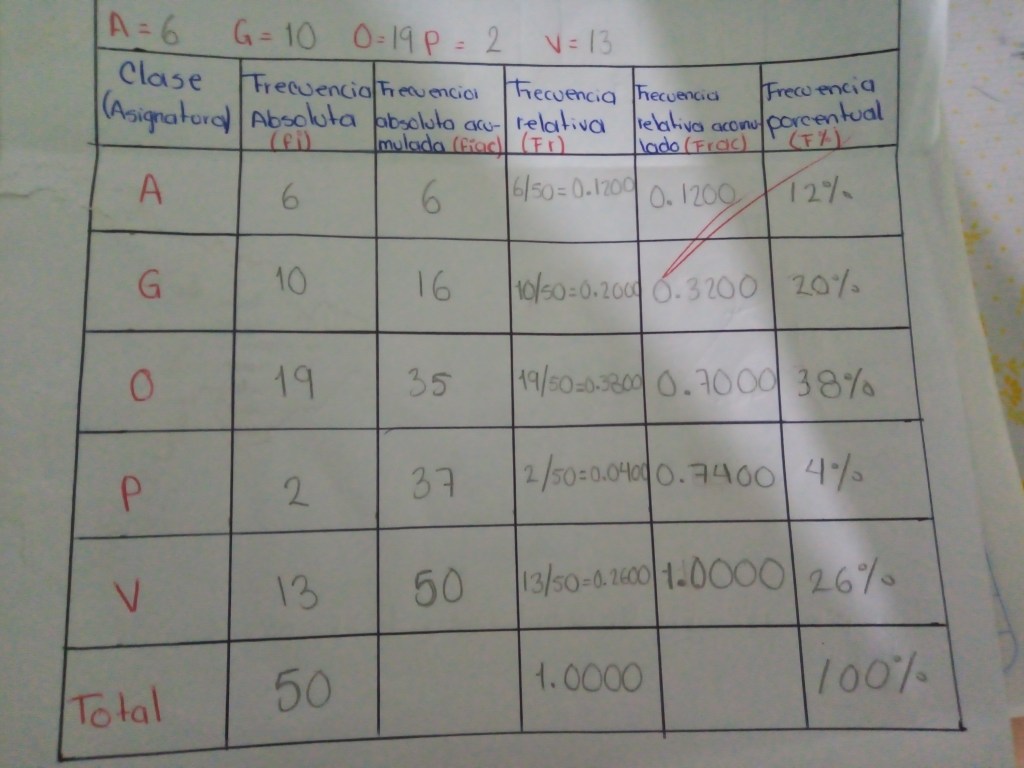 A = 6 G = 10 O = 19 P = 2 V = 13
Clase (Asignatura) Frecuencia Absoluta (fi) Frecuencia absoluta acu-mulada (fiac) Frecuencia relativa (Fr) Frecuencia relativa acomu-lado (Frac) Frecuencia porcentual (F%)
A 6 6 6/50=0.1200 0.1200 12%
G 10 16 10/50=0.2000 0.3200 20%
O 19 35 19/50=0.3800 0.7000 38%
P 2 37 2/50=0.0400 0.7400 4%
V 13 50 13/50=0.2600 1.0000 26%
Total 50 1.0000 100%